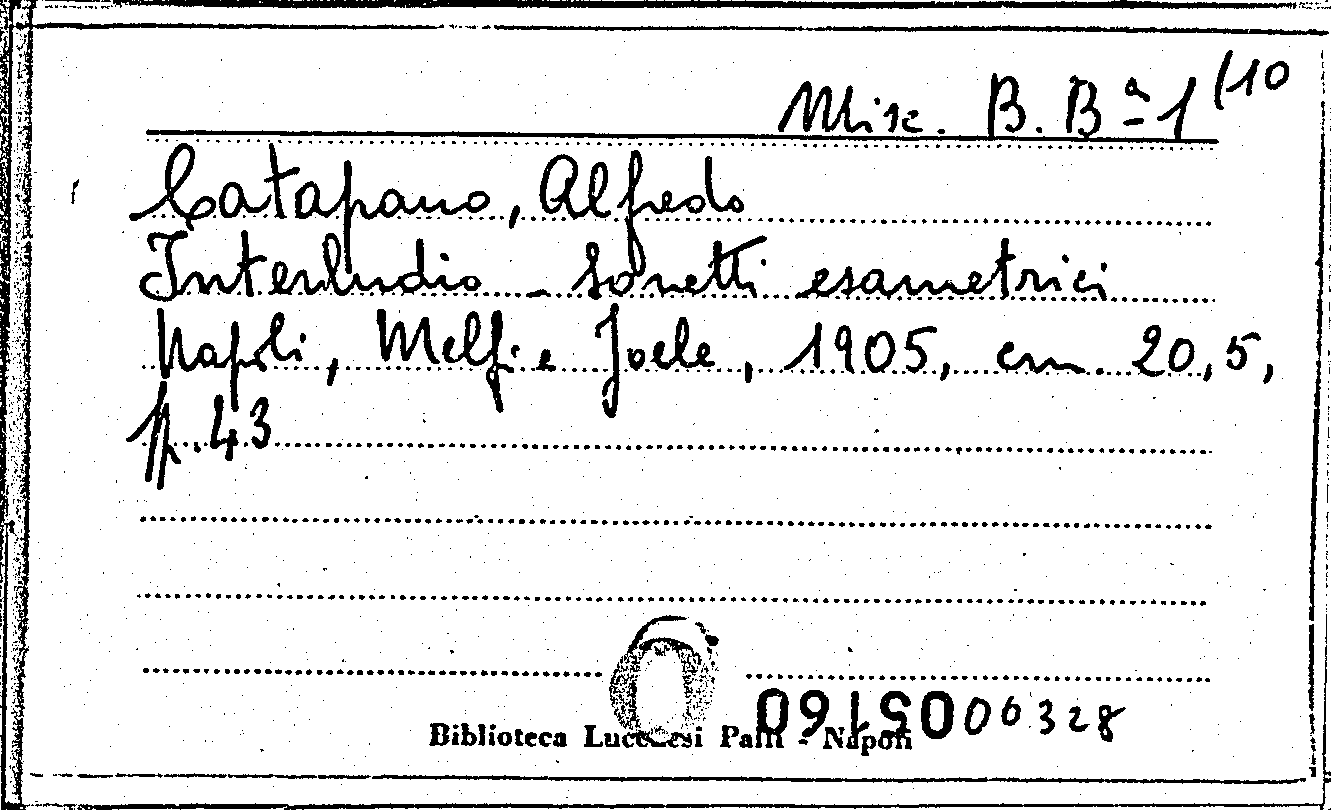 Misc. B. Bª 1 (10
Catapano, Alfredo
Interludio - Sonetti esametrici
Napoli, Melfi e Joele, 1905, cm. 20,5,
p. 43
006328
Biblioteca Lucchesi Palli - Napoli